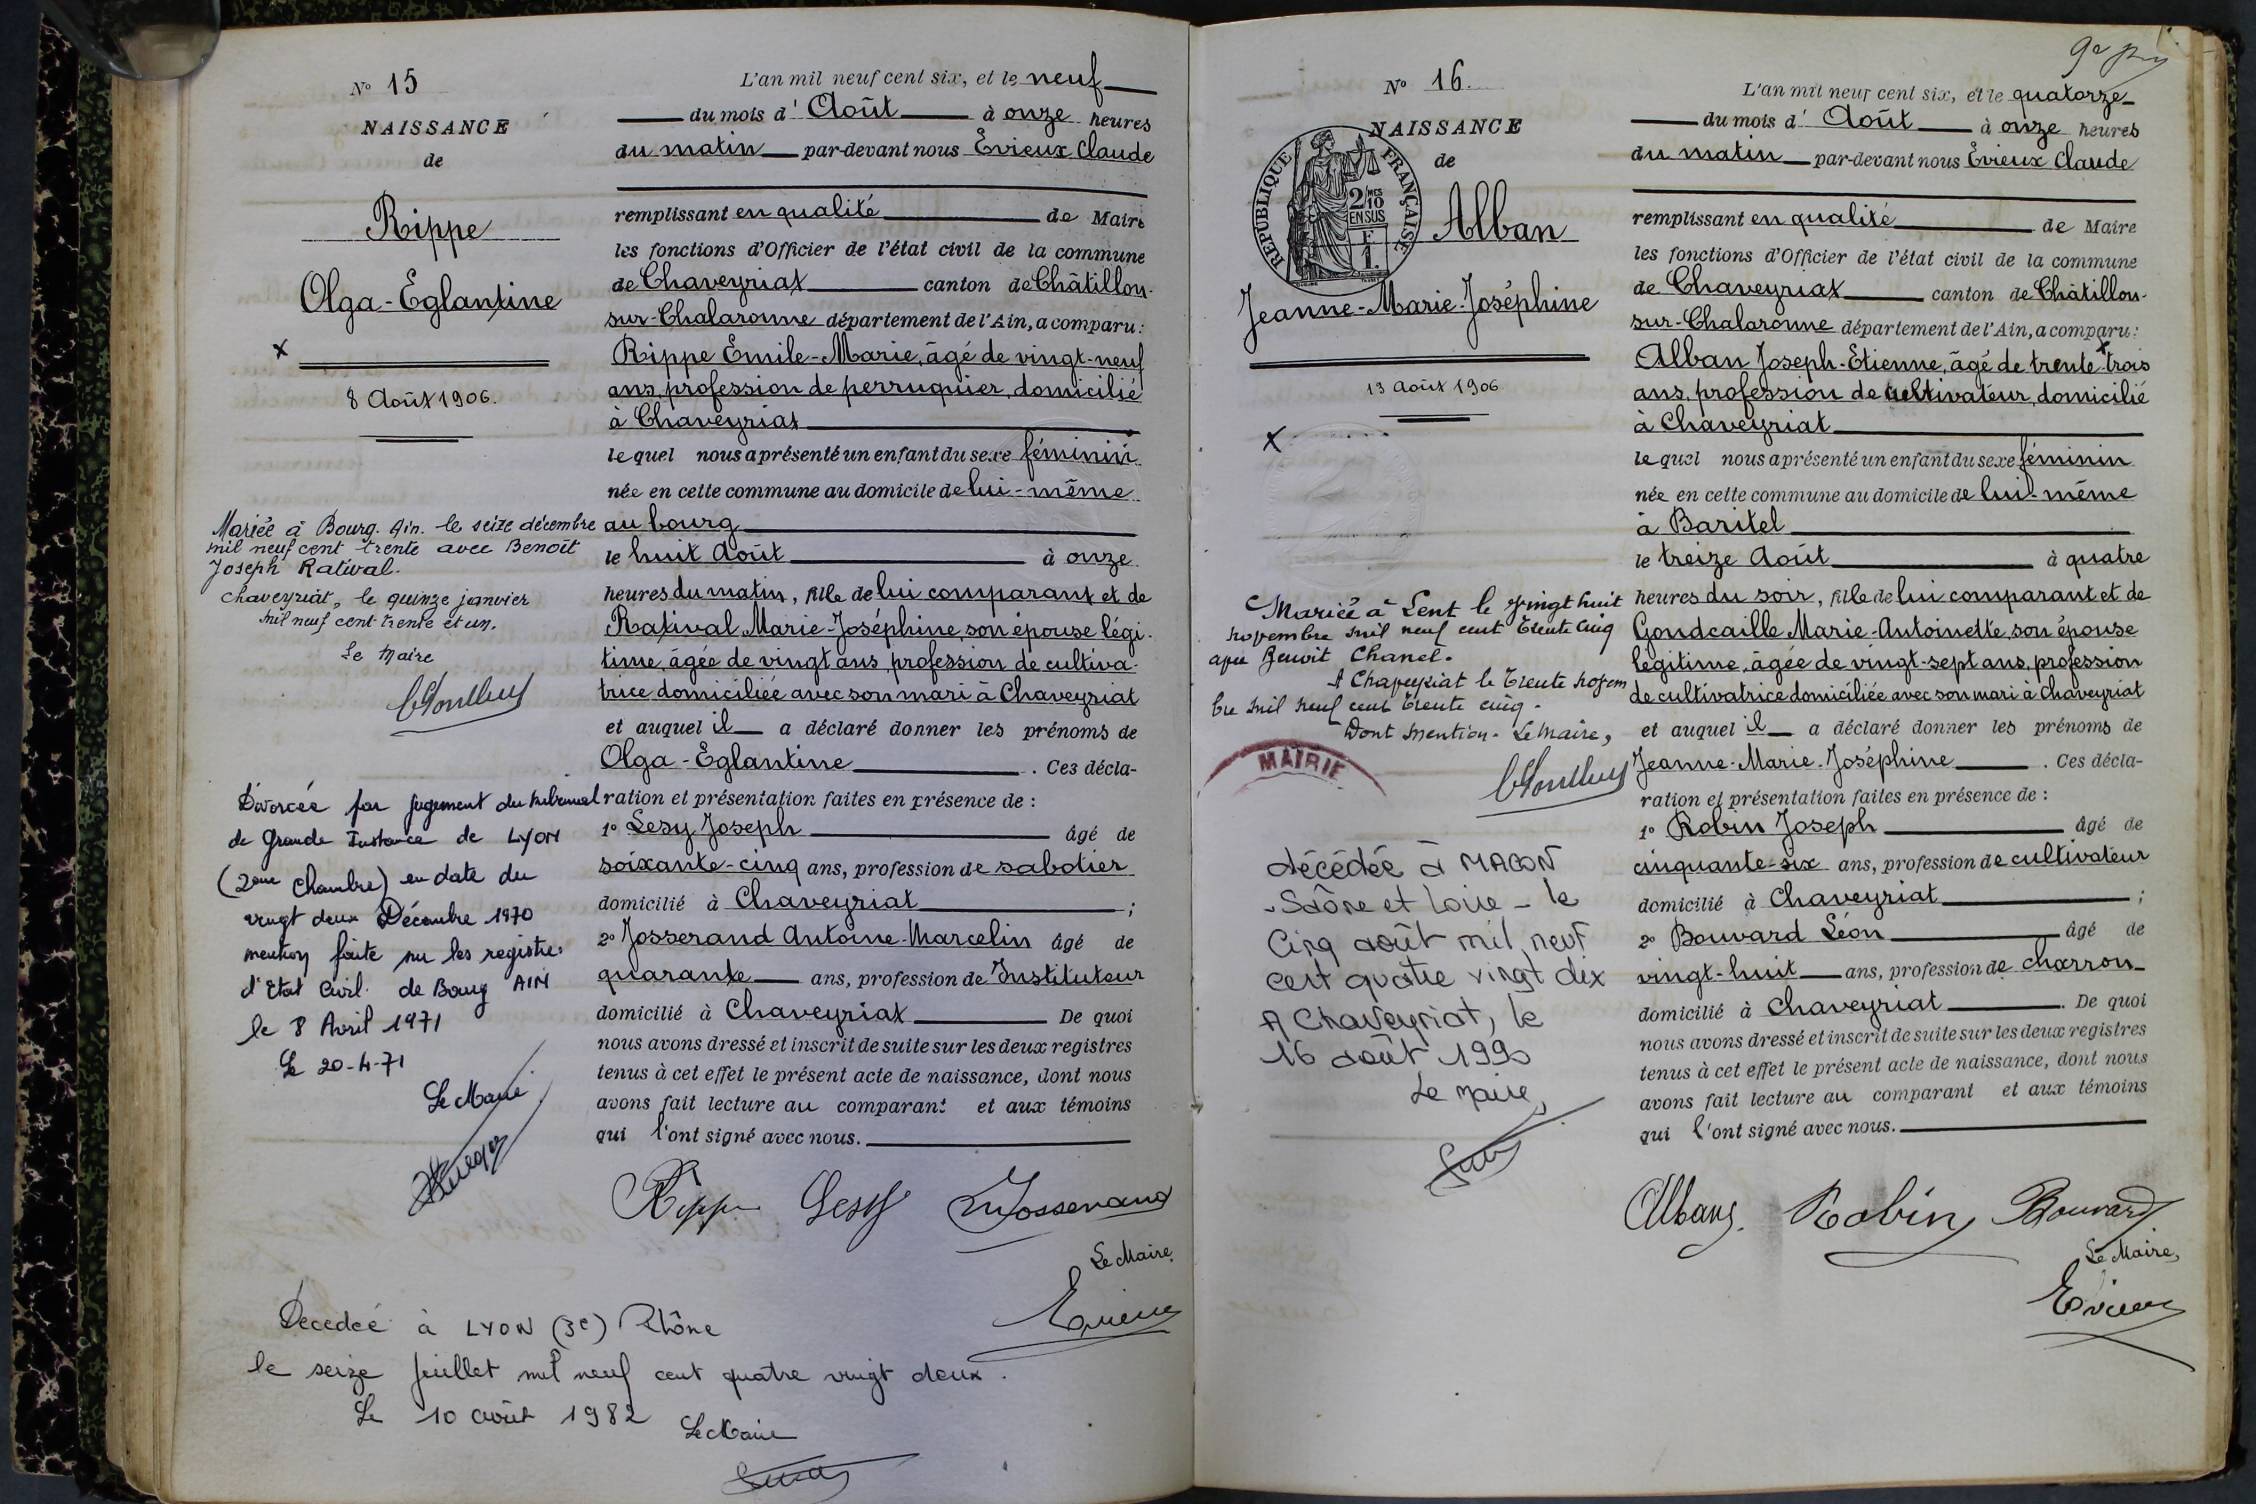 N° 15
NAISSANCE
de
Rippe
Olga-Églantine
8 Août 1906.
Mariée à Bourg. Ain. le seize décembre
mil neuf cent trente avec Benoît
Joseph Ratival.
Chaveyriat, le quinze janvier
mil neuf cent trente et un.
Le Maire
Divorcée par jugement du tribunal
de Grande Instance de LYON
(2ème Chambre) en date du
vingt deux Décembre 1970
mention faite sur les registres
d'Etat Civil de Bourg AIN
le 8 Avril 1971
Le 20-4-71
Le Maire
L'an mil neuf cent six, et le neuf
du mois d'Août à onze heures
du matin par-devant nous Évieux Claude
remplissant en qualité de Maire
les fonctions d'Officier de l'état civil de la commune
de Chaveyriat canton de Châtillon-
sur-Chalaronne département de l'Ain, a comparu:
Rippe Émile-Marie, âgé de vingt-neuf
ans, profession de perruquier, domicilié
à Chaveyriat
lequel nous a présenté un enfant du sexe féminin
née en cette commune au domicile de lui-même
au bourg
le huit Août à onze
heures du matin, fille de lui comparant et de
Ratival Marie-Joséphine, son épouse légi-
time, âgée de vingt ans, profession de cultiva-
trice domiciliée avec son mari à Chaveyriat
et auquel il a déclaré donner les prénoms de
Olga-Églantine. Ces décla-
ration et présentation faites en présence de :
1° Lesy Joseph âgé de
soixante-cinq ans, profession de sabotier
domicilié à Chaveyriat ;
2° Josserand Antoine-Marcelin âgé de
quarante ans, profession de Instituteur
domicilié à Chaveyriat De quoi
nous avons dressé et inscrit de suite sur les deux registres
tenus à cet effet le présent acte de naissance, dont nous
avons fait lecture au comparant et aux témoins
qui l'ont signé avec nous.
Rippe Lesy Josserand
Le Maire
Evieux
Décédée à LYON (3e) Rhône
le seize juillet mil neuf cent quatre vingt deux.
Le 10 août 1982 Le Maire
N° 16.
NAISSANCE
de
RÉPUBLIQUE FRANÇAISE
2/10
EN SUS
F
1.
Alban
Jeanne-Marie-Joséphine
13 Août 1906
Mariée à Lent le vingt huit
novembre mil neuf cent trente cinq
avec Benoit Chanel.
A Chaveyriat le trente novem
bre mil neuf cent trente cinq.
Dont mention. Le Maire,
MAIRIE
décédée à MACON
Saône et Loire - le
Cinq août mil neuf
cent quatre vingt dix
A Chaveyriat, le
16 août 1990
Le Maire,
L'an mil neuf cent six, et le quatorze
du mois d'Août à onze heures
du matin par-devant nous Évieux Claude
remplissant en qualité de Maire
les fonctions d'Officier de l'état civil de la commune
de Chaveyriat canton de Châtillon-
sur-Chalaronne département de l'Ain, a comparu:
Alban Joseph-Étienne, âgé de trente-trois
ans, profession de cultivateur, domicilié
à Chaveyriat
lequel nous a présenté un enfant du sexe féminin
née en cette commune au domicile de lui-même
à Baritel
le treize Août à quatre
heures du soir, fille de lui comparant et de
Gondcaille Marie-Antoinette, son épouse
légitime, âgée de vingt-sept ans, profession
de cultivatrice domiciliée avec son mari à Chaveyriat
et auquel il a déclaré donner les prénoms de
Jeanne-Marie-Joséphine. Ces décla-
ration et présentation faites en présence de :
1° Robin Joseph âgé de
cinquante-six ans, profession de cultivateur
domicilié à Chaveyriat ;
2° Bouvard Léon âgé de
vingt-huit ans, profession de charron
domicilié à Chaveyriat. De quoi
nous avons dressé et inscrit de suite sur les deux registres
tenus à cet effet le présent acte de naissance, dont nous
avons fait lecture au comparant et aux témoins
qui l'ont signé avec nous.
Alban Robin Bouvard
Le Maire,
Evieux